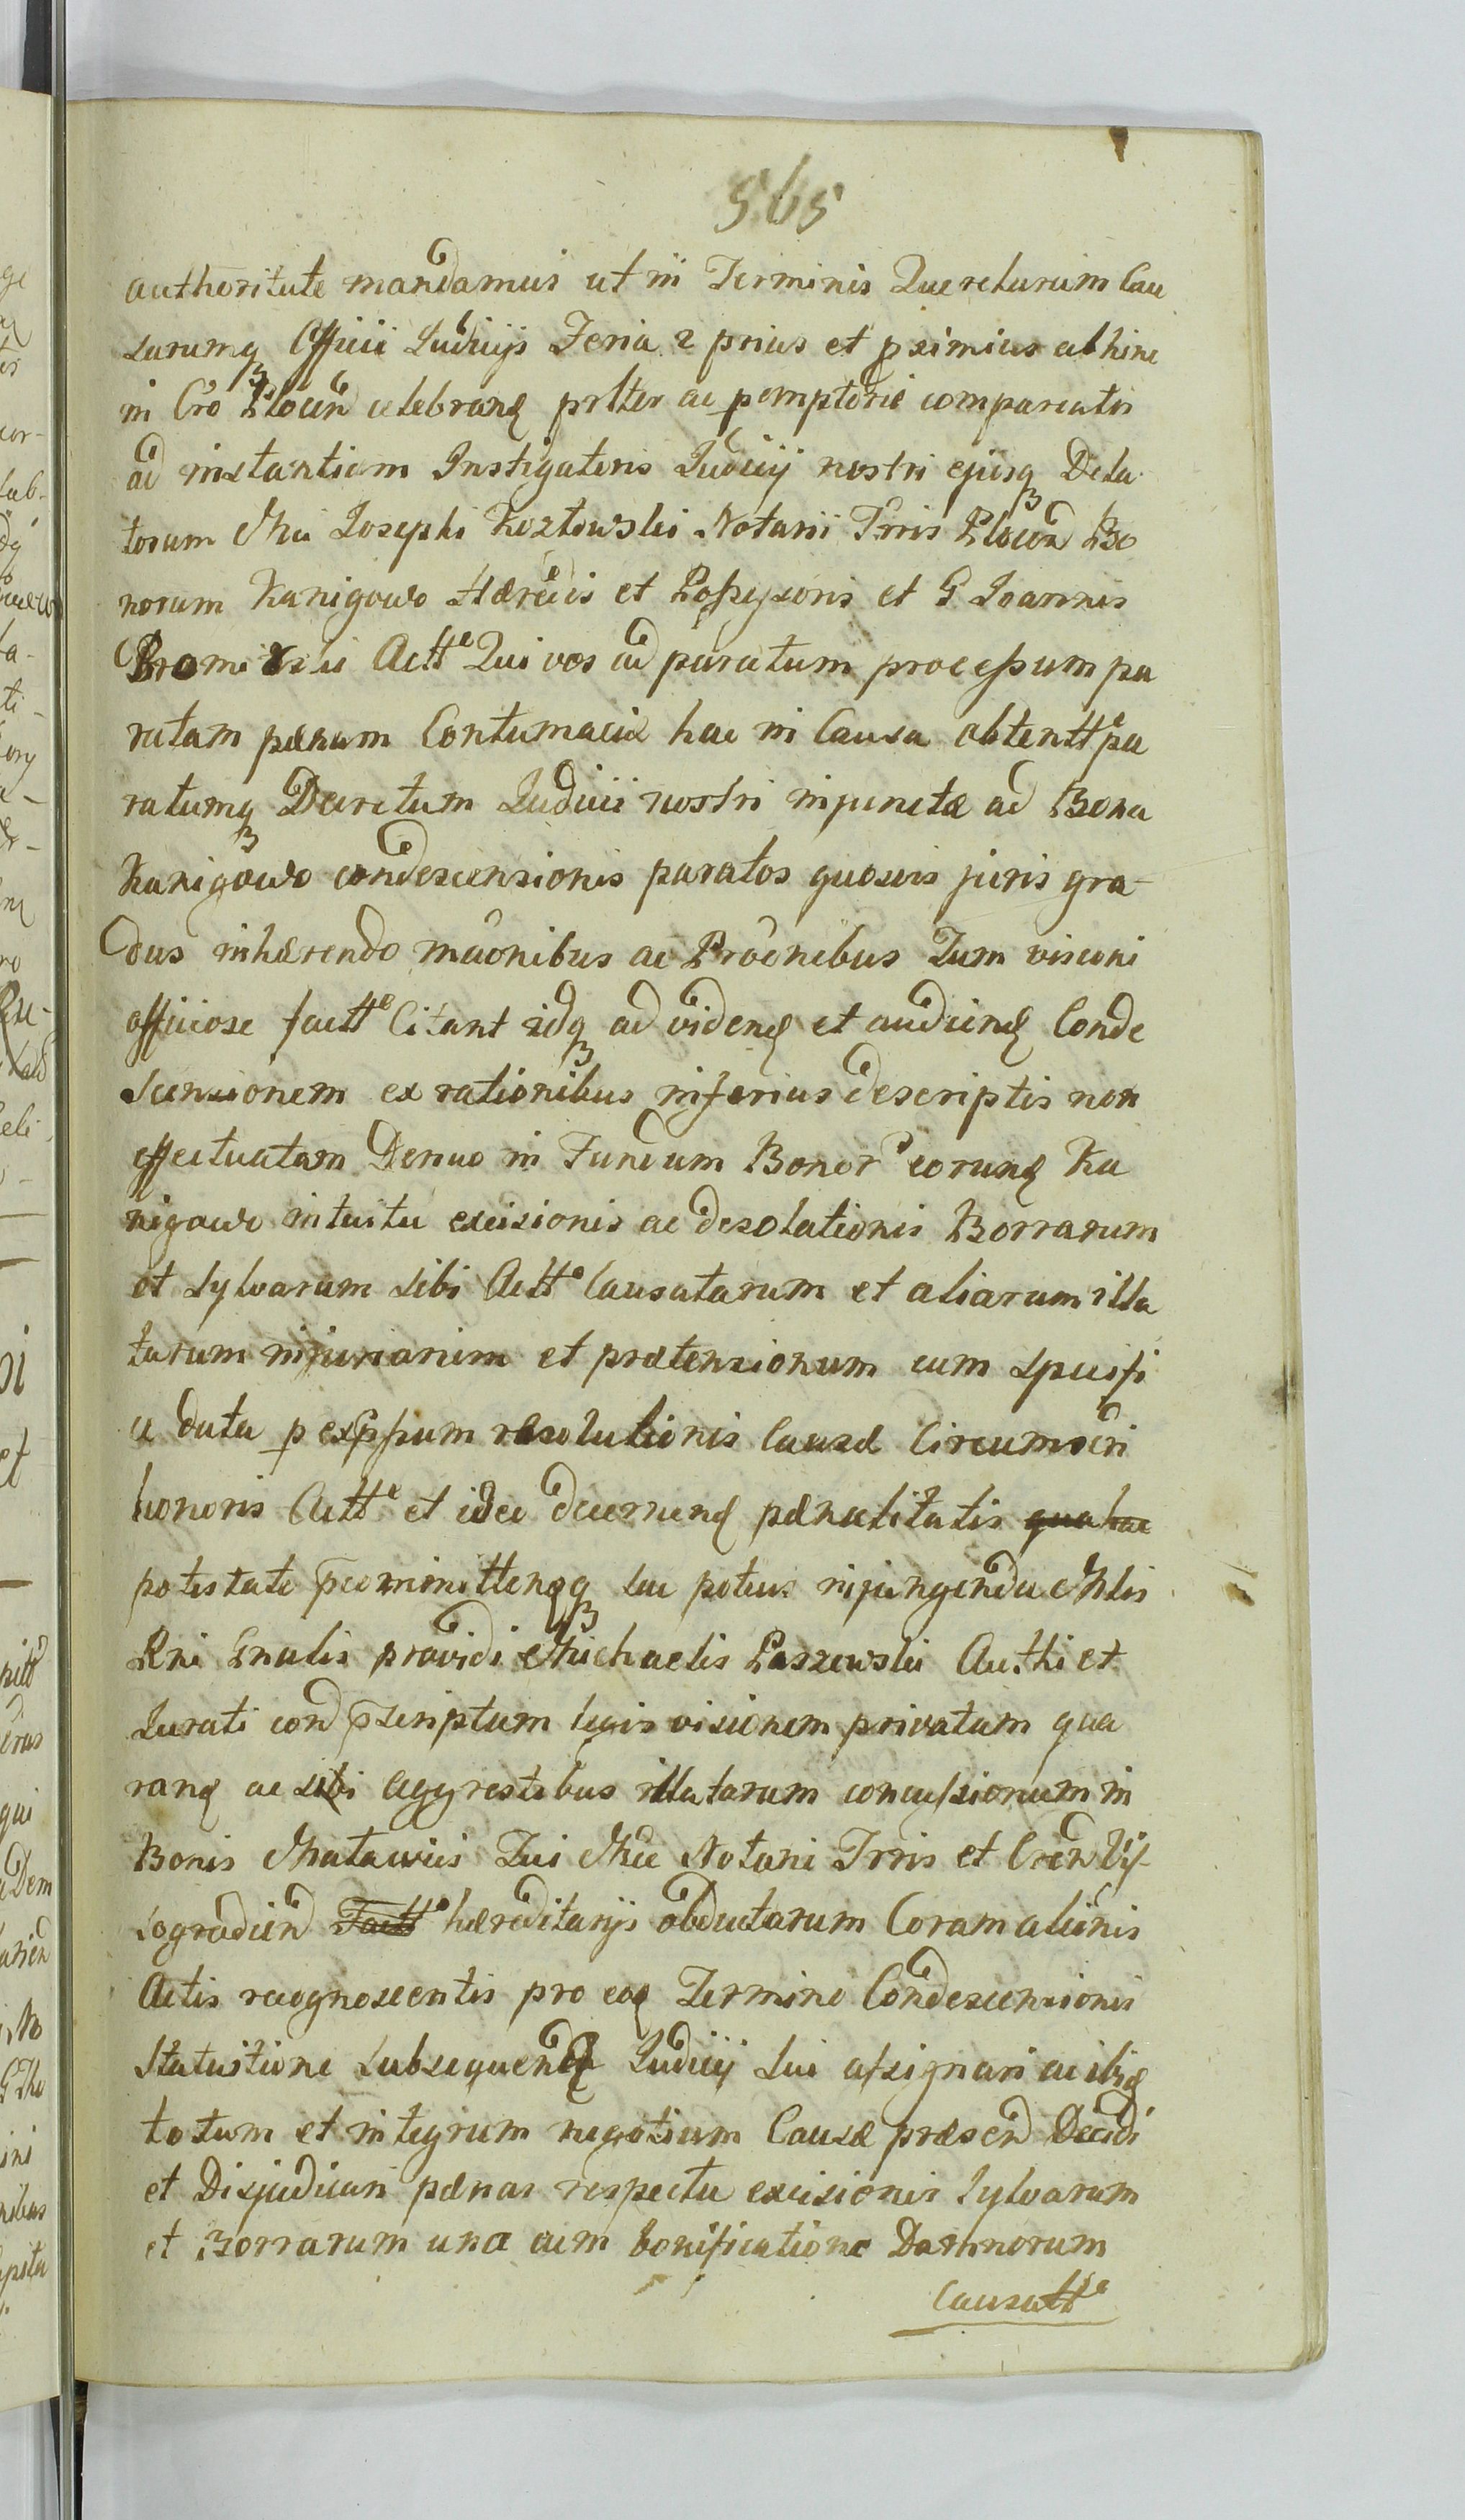 565
authoritate mandamus ut in Terminis Querelarum Cau
sarumq Officii Judicijs Feria 2 prius et pximius abhinc
in Cro Plocen celebranđ prlter ac pemptorie compareatis
ad instantiam Instigatoris Judicij nostri ejusq Dela
torum Mci Josephi Kozłowski Notarii Trris Plocen Bo
norum Kanigowo Hæredis et Possessoris et G Joannis
Bromirski Actt Qui vos ad paratum processum pa
ratam pænam Contumaciæ hac in Causa obtentt pa
ratumq Decretum Judicii nostri injunctæ ad Bona
Kanigowo condescensionis paratos quosvis juris gra-
dus inhærendo mãonibus ac Proõnibus Tum visioni
officiose factt Citant idq ad videnđ et audienđ Conde
scensionem ex rationibus inferius descriptis non
effectuatam Denuo in Fundum Bonor eorunđ Ka
nigowo intuitu excisionis ac desolationis Borrarum
et Sylvarum sibi Actt Causatarum et aliarum illa
tarum injuriarum et prætensionum cum specifi
ce data p expssum resolutionis Causæ Circumscri
honoris Actt et ideo decernenđ pænalitatis
potestate pmittenđq injungenda Mtis
Rni Gnalis providi Michaelis Paszewski Authi et
Jurati conđ pscriptum legis visionem privatam qua
ranđ ac sibi agrestibus illatarum concussionum in
Bonis Matawiis Sui Mci Notarii Trris et Cren Vy-
sogrodien Factt hæreditarijs obductarum Coram aliẽnis
Actis recognoscentis pro eođ Termino Condescensionis
Statuitione subsequenđ Judicij sui assignari ac ibiđ
totum et integrum negotium Causæ præsen Decidi
et Disjudicari pænas respectu excisionis Sylvarum
et Borrarum una cum bonificatione Damnorum
Causatt